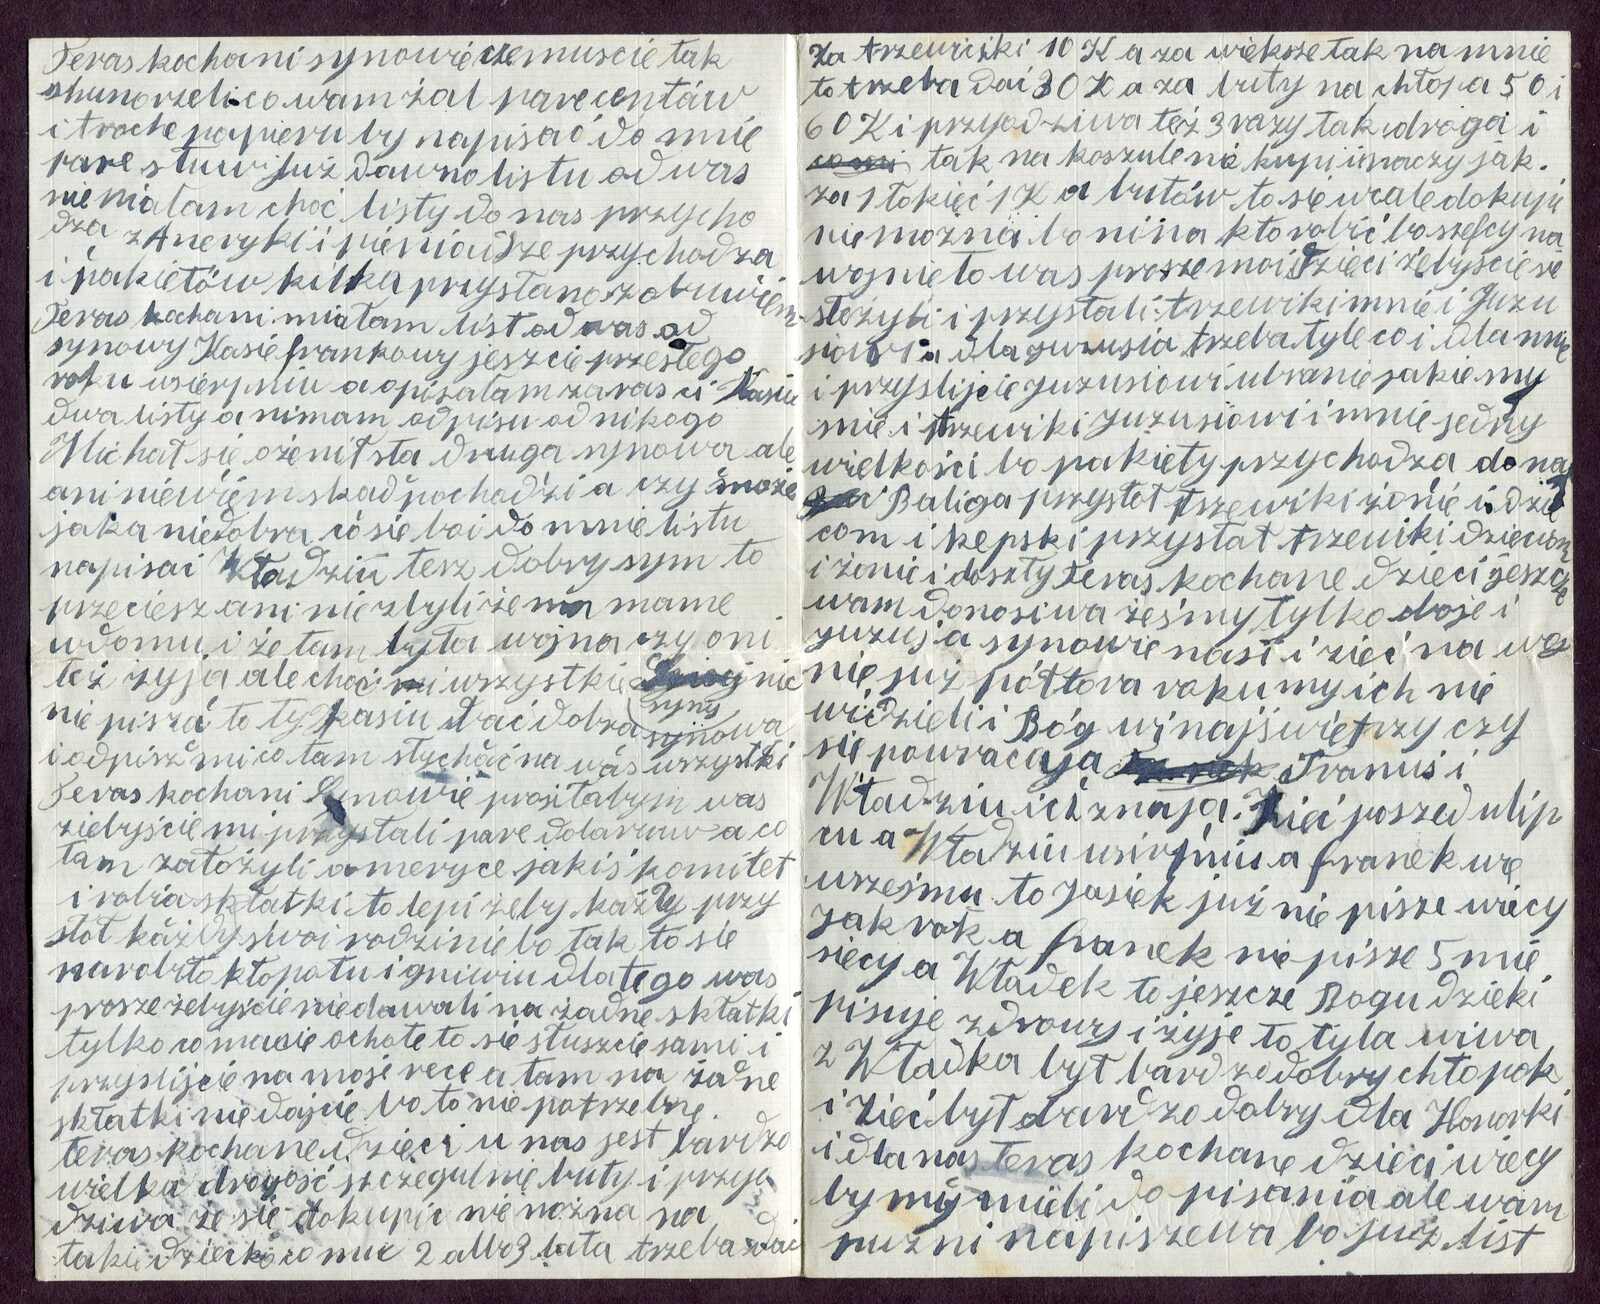 Teras kochani synowie czemuscie tak
shunorzeli co wam żal pare centów
i troche papieru by napisać do mnie
pare stuw już dawno listu od was
nie miałam choć listy do nas przycho
dza z Ameryki i pieniadze przychodza
i pakietów kilka przysłano z obuwiem
Teras kochani miałam list od was od
synowy Kasie frankowy jeszcie przesłego
roku usierpniu a opisałam zaras ci Kasiu
dwa listy a nimam odpisu od nikogo
Michał sie ożenił sta druga synowa ale
ani niewiem skad pochodzi a czy może
jaka niedobra co sie boi do mnie listu
napisai Władziu tesz dobry sym to
przeciesz ani niezbyli że ma mame
wdomu i że tam była wojna czy oni
też żyja ale choć mi wszystkie syny nic
nie pisza to ty Kasiu bać dobra synowa
i odpisz mi co tam stychać na was wszystki
Teras kochani Synowie prosiłabym was
ziebyście mi przystali pare dolaruw a co
tam założyli ameryce jakiś komitet
i robia składki to lepi żeby każdy przy
stoł każdy swoi rodzinie bo tak to sie
narobiło kłopotu i gniwiu dlatego was
prosze żebyście niedawali na żadne składki
tylko co macie ochote to sie stuszcie sami i
przyslijcie na moje rece a tam na żadne
składki nie dajcie bo to nie potrzebne.
teras kochane dzieci u nas jest bardzo
wielka drogość szczegulnie buty i przyo
dziwa że sie dokupić nie nożna na
takie dziecko co mie 2 albo 3 lata trzeba dać
za trzewiczki 10 K a za wieksze tak na mnie
to trzeba dać 30 K a za buty na chłopa 50 i
60 K i przyodziwa też 3 razy tak droga i
tak na koszule nie kupi inaczy jak.
za 1 łokieć 1 K a butów to sie wcale dokupi
nie mozna bo nima kto robić bo szefcy na
wojnie to was prosze moi dzieci żebyście sie
stożyli i przystali trzewiki mnie i Juzu
siowi a dla juzusia trzeba tyle co i dla mnie
i przyslijcie juzusiowi ubranie jakie my
snie i trzewiki juzusiowi i mnie jedny
wielkości bo pakiety przychodza do nas
Baliga przysłoł trzewiki żonie i dzie
com i kepski przysłał trzewiki dzieciom
i żonie i doszły teras kochane dzieci jeszcze
wam donosiwa żeśmy tylko doje i
juzuś a synowie nasi i zieć na woj
nie już półtora roku my ich nie
widzieli i Bóg wi najświetrzy czy
sie powracaja Franuś i
Władziu ich znaja. Zieć poszed ulip
cu a Władziu usirpniu a franek we
wrześniu to Jasiek już nie pisze wiecy
jak rok a franek nie pisze 5 mie
siecy a Władek to jeszcze Bogu dzieki
pisuje zdrowy i żyje to tyla wiwa
z Władka był bardzo dobry chłopok
i Zieć był bardzo dobry dla Honorki
i dla nas teras kochane dzieci wiecy
by my mieli do pisania ale wam
puzni napiszewa bo już list